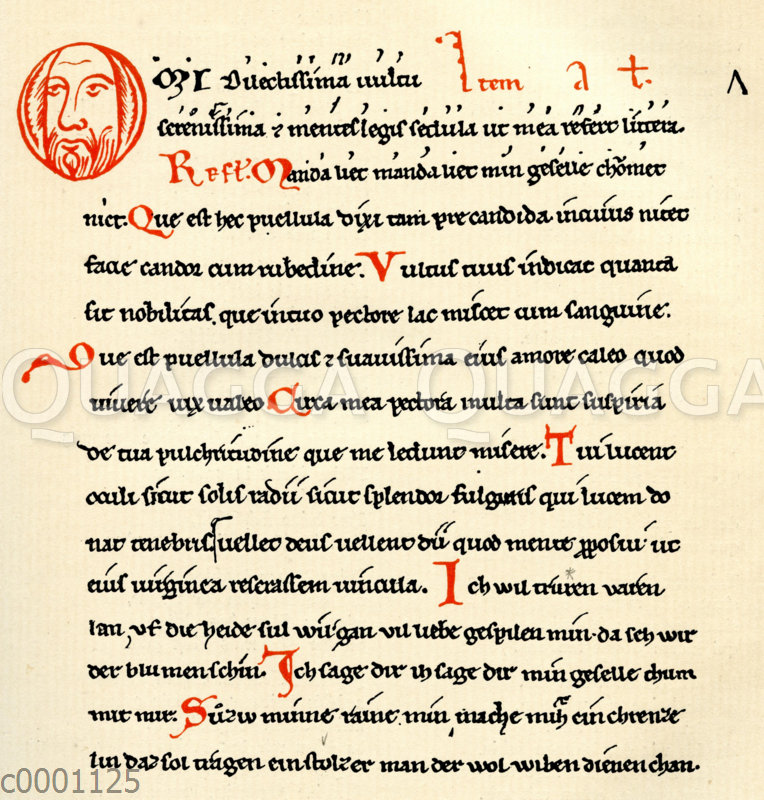 OMI Dilectissima uultu Item a t.
serenissima ⁊ mentes legis sedula ut mea refert littera.
Refl. Mandaliet mandaliet min geselle chomet
niet. Que est hec puellula dixi tam precandida incuius nitet
facie candor cum rubedine. Vultus tuus indicat quanta
sit nobilitas. que intuo pectore lac miscet cum sanguine.
Que est puellula dulcis ⁊ suauissima eius amore caleo quod
uiuere uix ualeo Circa mea pectora multa sunt suspiria
de tua pulchritudine que me ledunt misere. Tui lucent
occuli sicut solis radii sicut splendor fulguris qui lucem do
nat tenebris uellet deus uellent dii quod mente proposui ut
eius uirginea reserassem uincula. Ich wil truren varen
lan, vf die heide sul wir gan vil liebe gespilen min. da seh wir
der blumen schin. Ich sage dir ih sage dir min geselle chum
mit mir. Suͦziv minne raine min, mache mih ein chrenze
lin daz sol tragen ein stolzer man der wol wiben dienen chan.
QUAGGA QUAGGA
c0001125